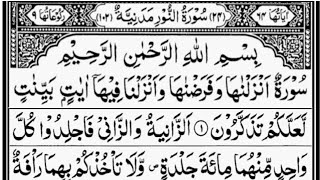 اٰيَاتُهَا ٦٤ (٢٤) سُوْرَةُ النُّوْرِ مَدَنِيَّةٌ (١٠٢) رُكُوْعَاتُهَا ٩
بِسْمِ اللّٰهِ الرَّحْمٰنِ الرَّحِيْمِ
سُوْرَةٌ اَنْزَلْنٰهَا وَفَرَضْنٰهَا وَاَنْزَلْنَا فِيْهَاۤ اٰيٰتٍۭ بَيِّنٰتٍ
لَّعَلَّكُمْ تَذَكَّرُوْنَ ① اَلزَّانِيَةُ وَالزَّانِيْ فَاجْلِدُوْا كُلَّ
وَاحِدٍ مِّنْهُمَا مِائَةَ جَلْدَةٍ ۪ وَّلَا تَاْخُذْكُمْ بِهِمَا رَاْفَةٌ